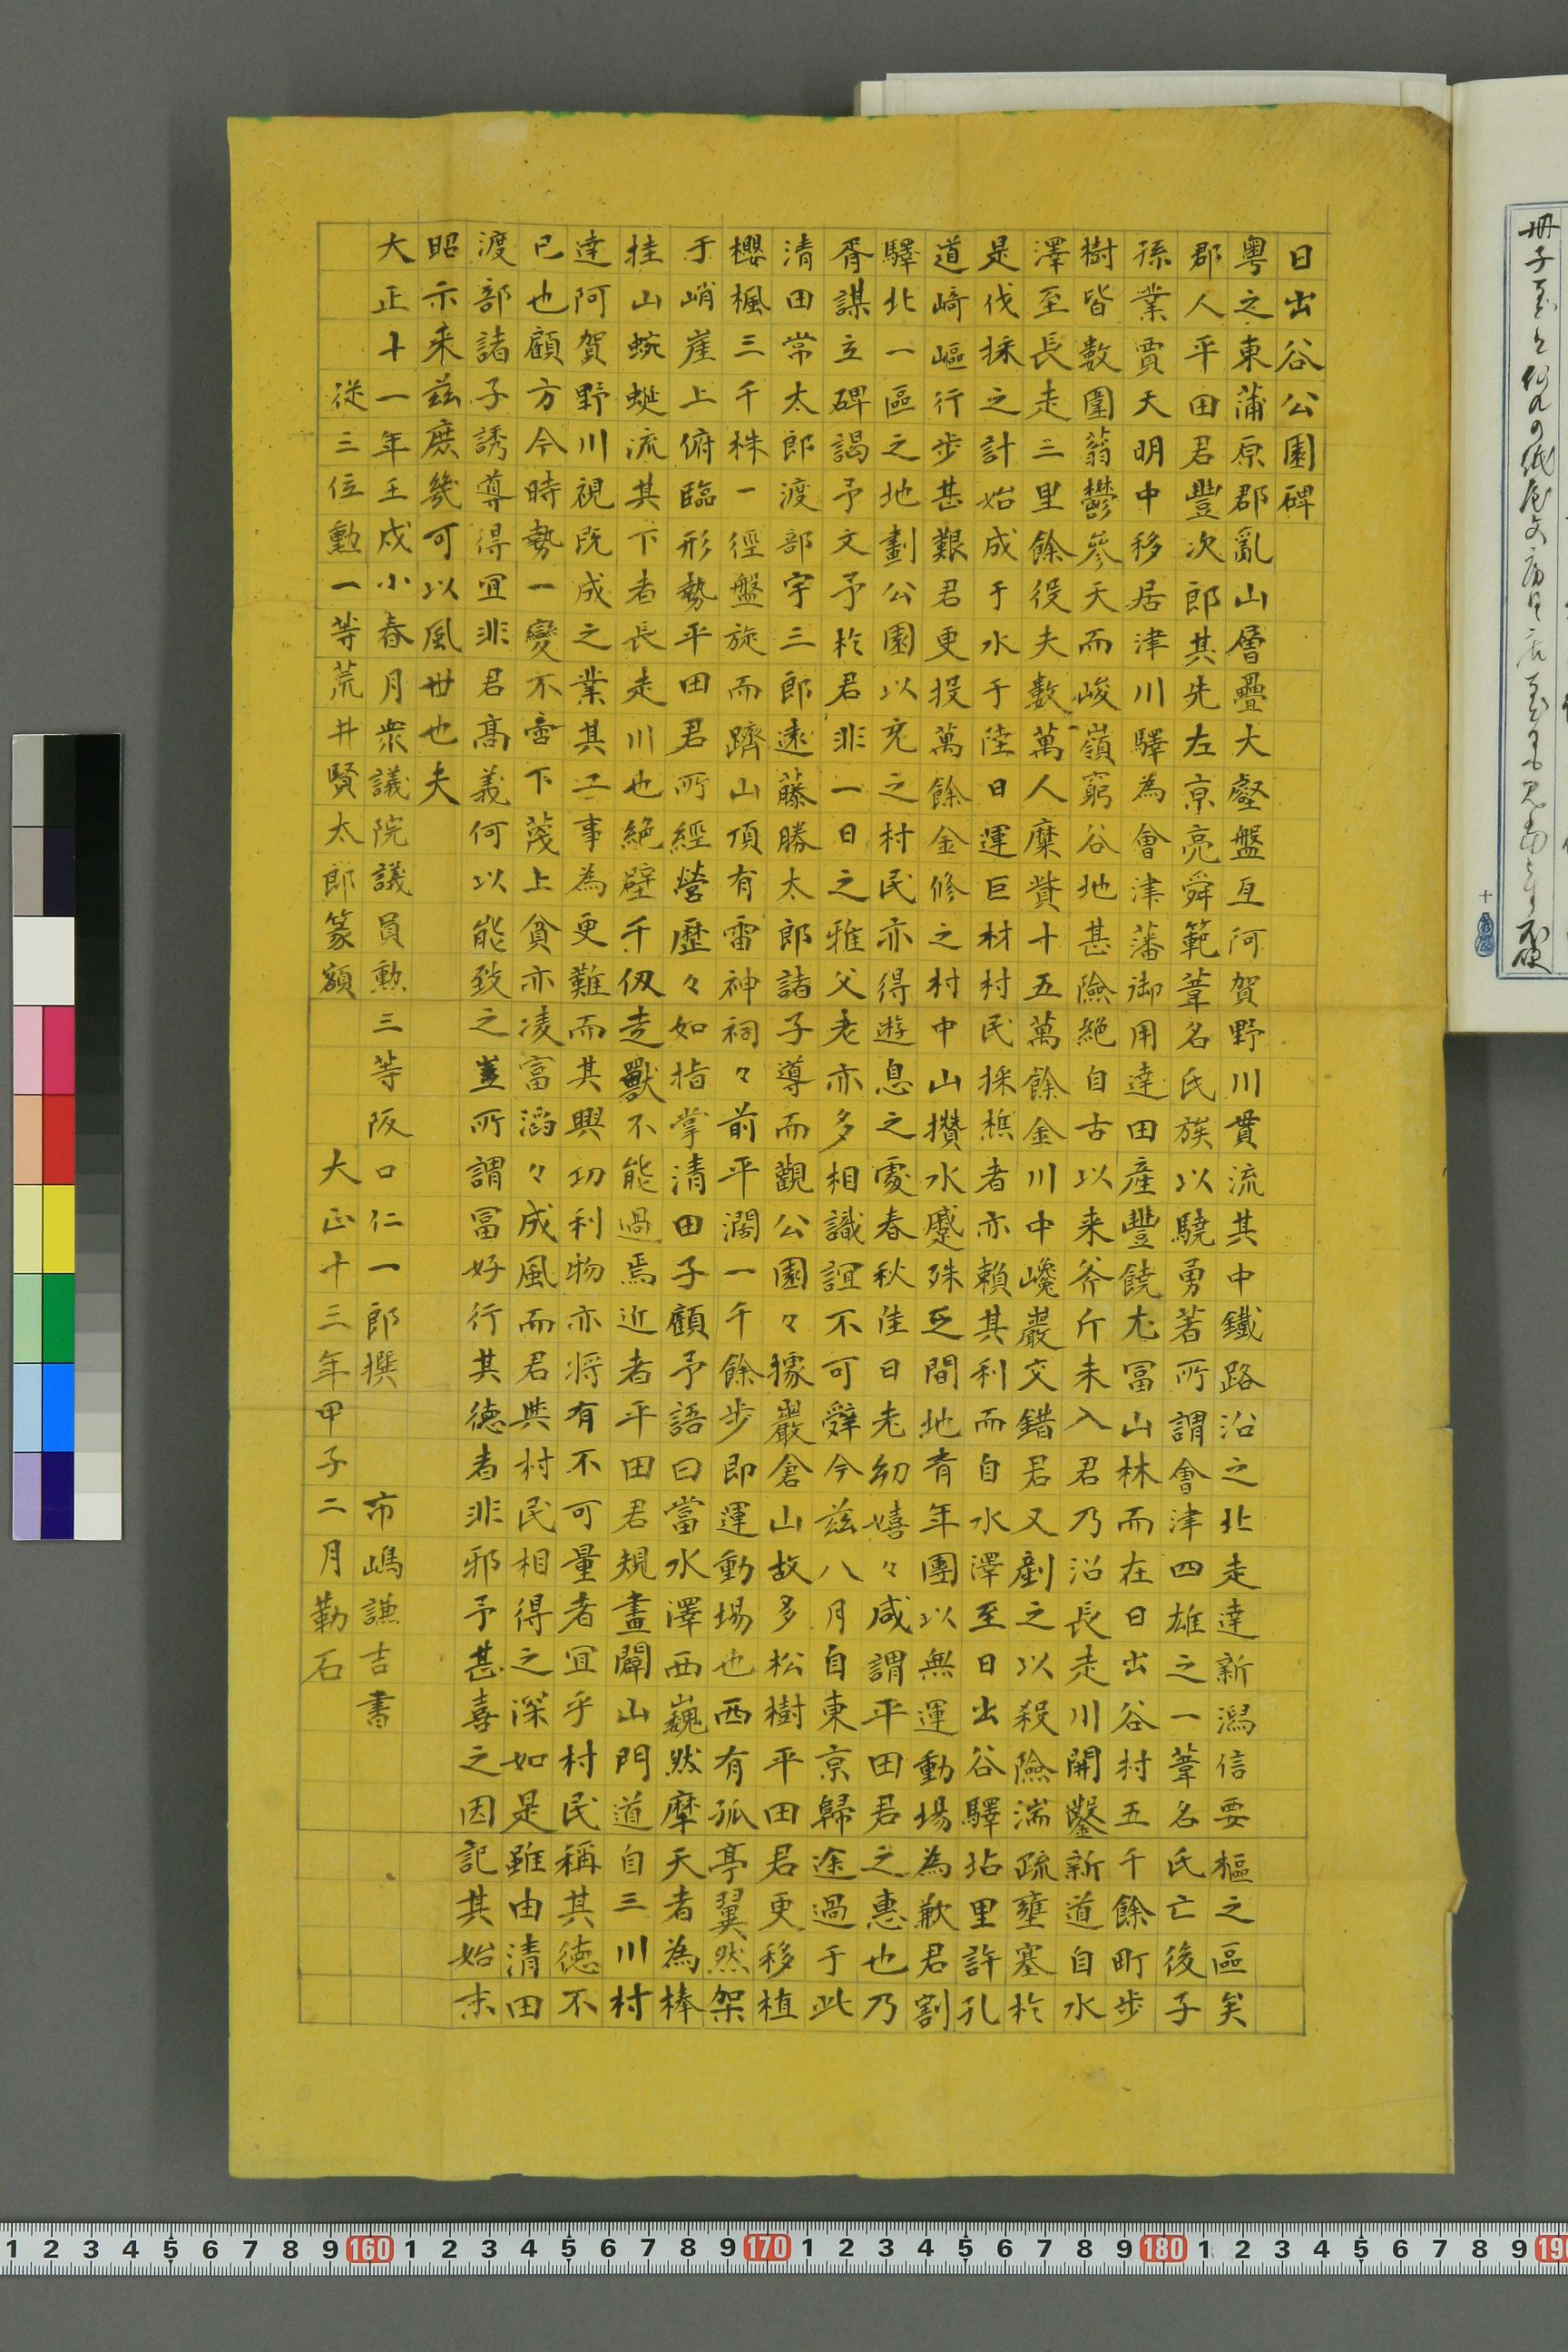 日出谷公園碑
粤之東蒲原郡亂山層疊大壑盤亘阿賀野川貫流其中鐵路沿之北走達新潟信要樞之區矣
郡人平田君豐次郎其先左京亮舜範葦名氏族以驍勇著所謂會津四雄之一葦名氏亡後子
孫業賈天明中移居津川驛為會津藩御用達田産豐饒尤冨山林而在日出谷村五千餘町步
樹皆數圍蓊鬱參天而峻嶺窮谷地甚險絶自古以来斧斤未入君乃沿長走川開鑿新道自水
澤至長走三里餘役夫數萬人糜貲十五萬餘金川中巉巖交錯君又剷之以殺險湍疏壅塞於
是伐採之計始成于水于陸日運巨材村民採樵者亦賴其利而自水澤至日出谷驛坫里許孔
道﨑嶇行步甚艱君更投萬餘金修之村中山攢水蹙殊乏間地青年團以無運動場為歉君割
驛北一區之地劃公園以充之村民亦得遊息之處春秋佳日老幼嬉々咸謂平田君之惠也乃
胥謀立碑謁予文予於君非一日之雅父老亦多相識誼不可辭今兹八月自東京歸途過于此
清田常太郎渡部宇三郎遠藤勝太郎諸子導而觀公園々據巖倉山故多松樹平田君更移植
櫻楓三千株一徑盤旋而躋山頂有雷神祠々前平濶一千餘步即運動場也西有孤亭翼然架
于峭崖上俯臨形勢平田君所經營歷々如指掌清田子顧予語曰當水澤西巍然摩天者為棒
挂山蜿蜒流其下者長走川也絶壁千仭走獸不能過焉近者平田君規畫闢山門道自三川村
達阿賀野川視既成之業其工事為更難而其興功利物亦将有不可量者宜乎村民稱其徳不
已也顧方今時勢一變不啻下蔑上貧亦凌富滔々成風而君與村民相得之深如是雖由清田
渡部諸子誘導得宜非君髙義何以能致之豈所謂冨好行其徳者非邪予甚喜之因記其始末
昭示来兹庶幾可以風丗也夫
大正十一年壬戌小春月衆議院議員勲三等阪口仁一郎撰　市嶋謙吉書
從三位勳一等荒井賢太郎篆額　大正十三年甲子二月勒石